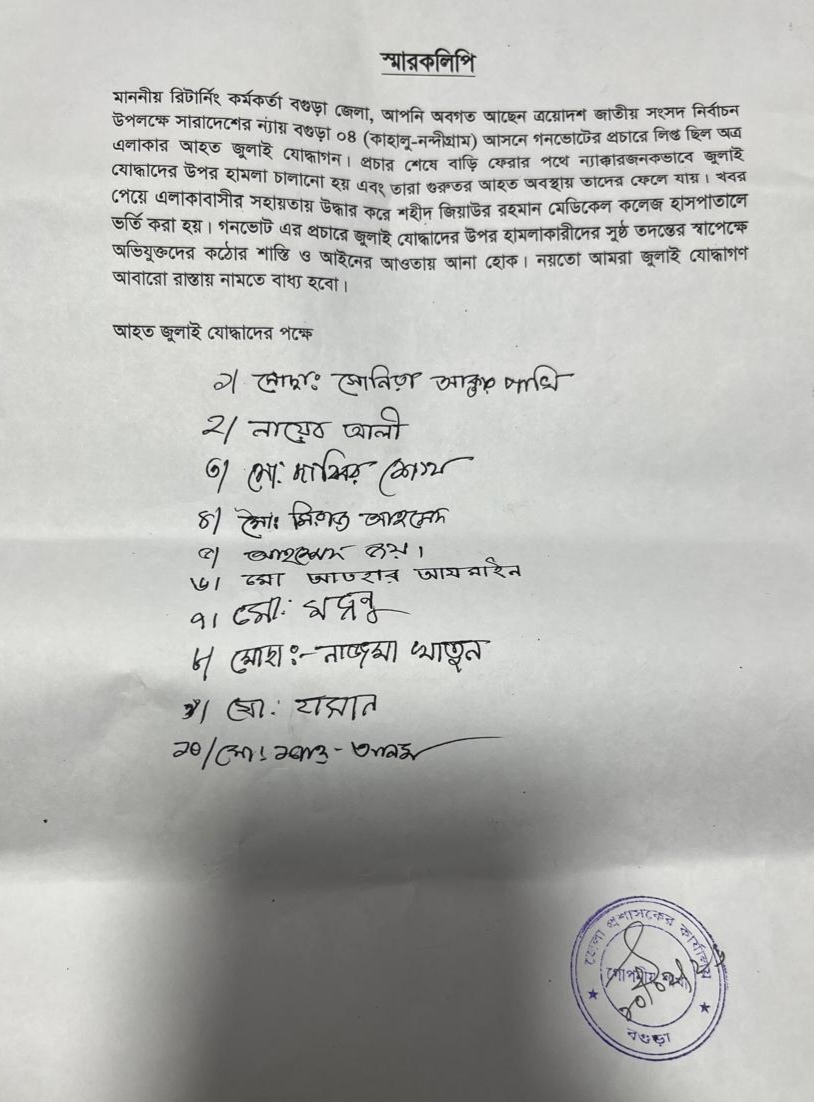 স্মারকলিপি
মাননীয় রিটার্নিং কর্মকর্তা বগুড়া জেলা, আপনি অবগত আছেন ত্রয়োদশ জাতীয় সংসদ নির্বাচন
উপলক্ষে সারাদেশের ন্যায় বগুড়া ০৪ (কাহালু-নন্দীগ্রাম) আসনে গনভোটের প্রচারে লিপ্ত ছিল অত্র
এলাকার আহত জুলাই যোদ্ধাগন। প্রচার শেষে বাড়ি ফেরার পথে ন্যাক্কারজনকভাবে জুলাই
যোদ্ধাদের উপর হামলা চালানো হয় এবং তারা গুরুতর আহত অবস্থায় তাদের ফেলে যায়। খবর
পেয়ে এলাকাবাসীর সহায়তায় উদ্ধার করে শহীদ জিয়াউর রহমান মেডিকেল কলেজ হাসপাতালে
ভর্তি করা হয়। গনভোট এর প্রচারে জুলাই যোদ্ধাদের উপর হামলাকারীদের সুষ্ঠ তদন্তের স্বাপেক্ষে
অভিযুক্তদের কঠোর শাস্তি ও আইনের আওতায় আনা হোক। নয়তো আমরা জুলাই যোদ্ধাগণ
আবারো রাস্তায় নামতে বাধ্য হবো।
আহত জুলাই যোদ্ধাদের পক্ষে
১/ মোছাঃ সোনিয়া আক্তার
২/ নায়েব আলী
৩/ মো:
৪/ মোঃ আহমেদ
৫/ আহম্মেদ
৬/ মো
৭। মো:
৮/ মোছা:- নাজমা খাতুন
৯/ মো: হাসান
১০/ মোঃ
জেলা প্রশাসকের কার্যালয়
গোপনীয় শাখা
বগুড়া